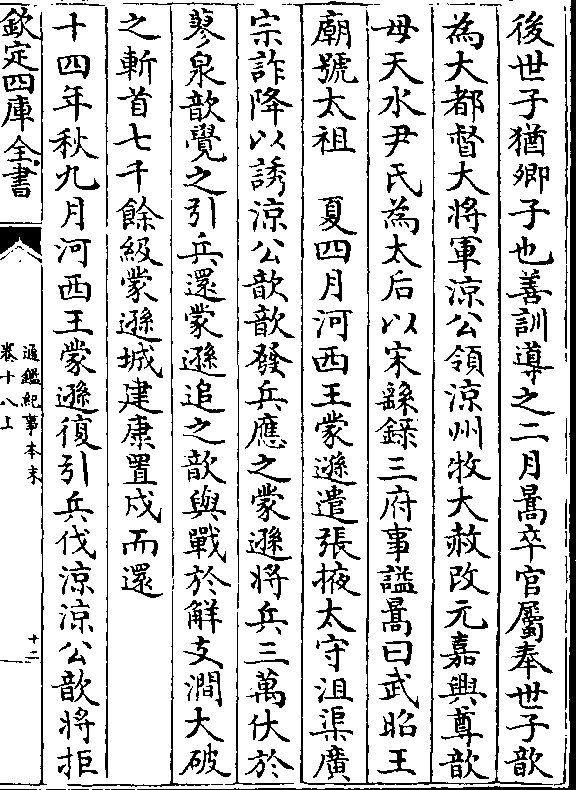 後世子猶卿子也善訓導之二月暠卒官屬奉世子歆
為大都督大將軍涼公領涼州牧大赦改元嘉興尊歆
母天水尹氏為太后以宋繇錄三府事謚暠曰武昭王
廟號太祖　夏四月河西王蒙遜遣張掖太守沮渠廣
宗詐降以誘涼公歆歆發兵應之蒙遜將兵三萬伏於
蓼泉歆覺之引兵還蒙遜追之歆與戰於解支澗大破
之斬首七千餘級蒙遜城建康置戍而還
十四年秋九月河西王蒙遜復引兵伐涼涼公歆將拒
欽定四庫全書
通鑑紀事本末
卷十八上
十二